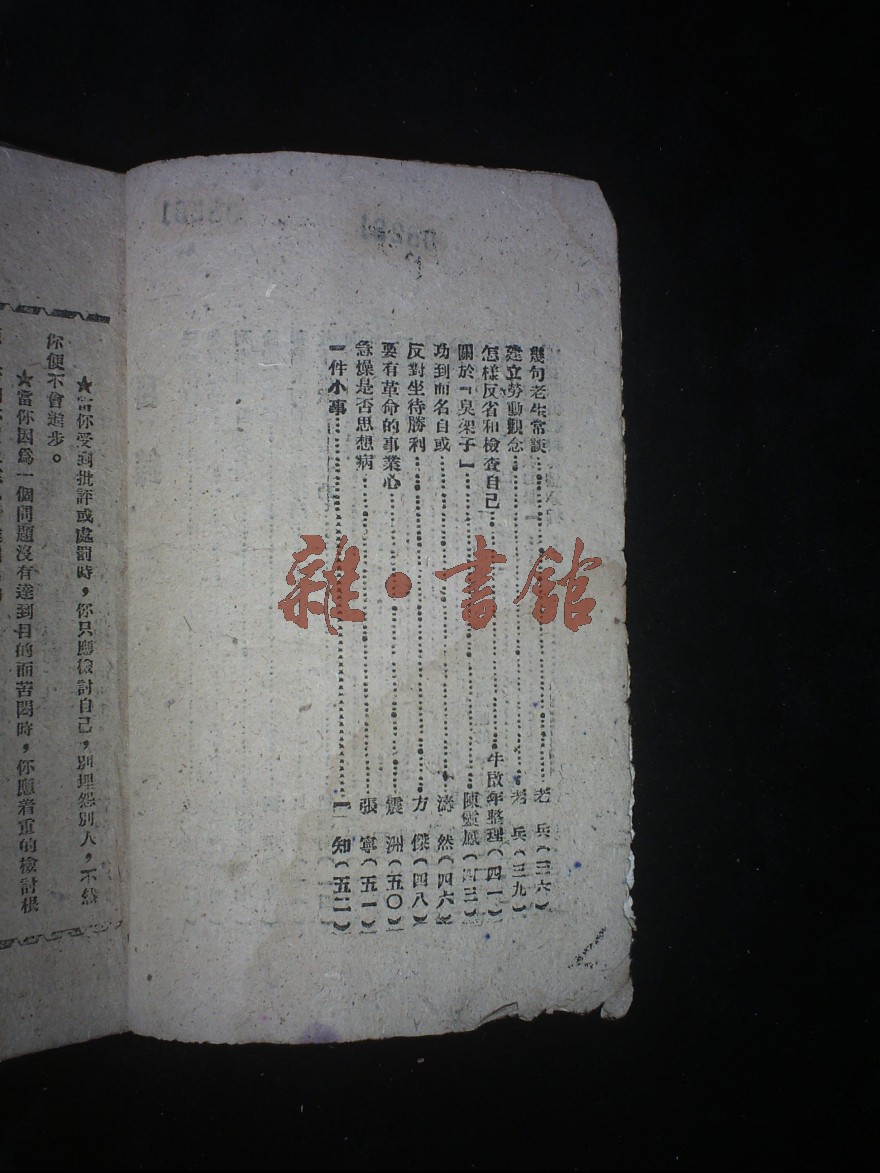 幾句老生常談……老 兵(三六)
建立勞動觀念……老 兵(三九)
怎樣反省和檢查自己……牛啟年整理(四一)
關於「臭架子」……陳靈鳳(四三)
功到而名自成……濤 然(四六)
反對坐待勝利……方 傑(四八)
要有革命的事業心……震 洲(五〇)
急燥是否思想病……張 寧(五一)
一件小事……一 知(五二)
★當你受到批評或處罰時,你只應檢討自己,別埋怨別人,不然
你便不會進步。
★當你因爲一個問題沒有達到目的而苦悶時,你應着重的檢討根
雜·書館